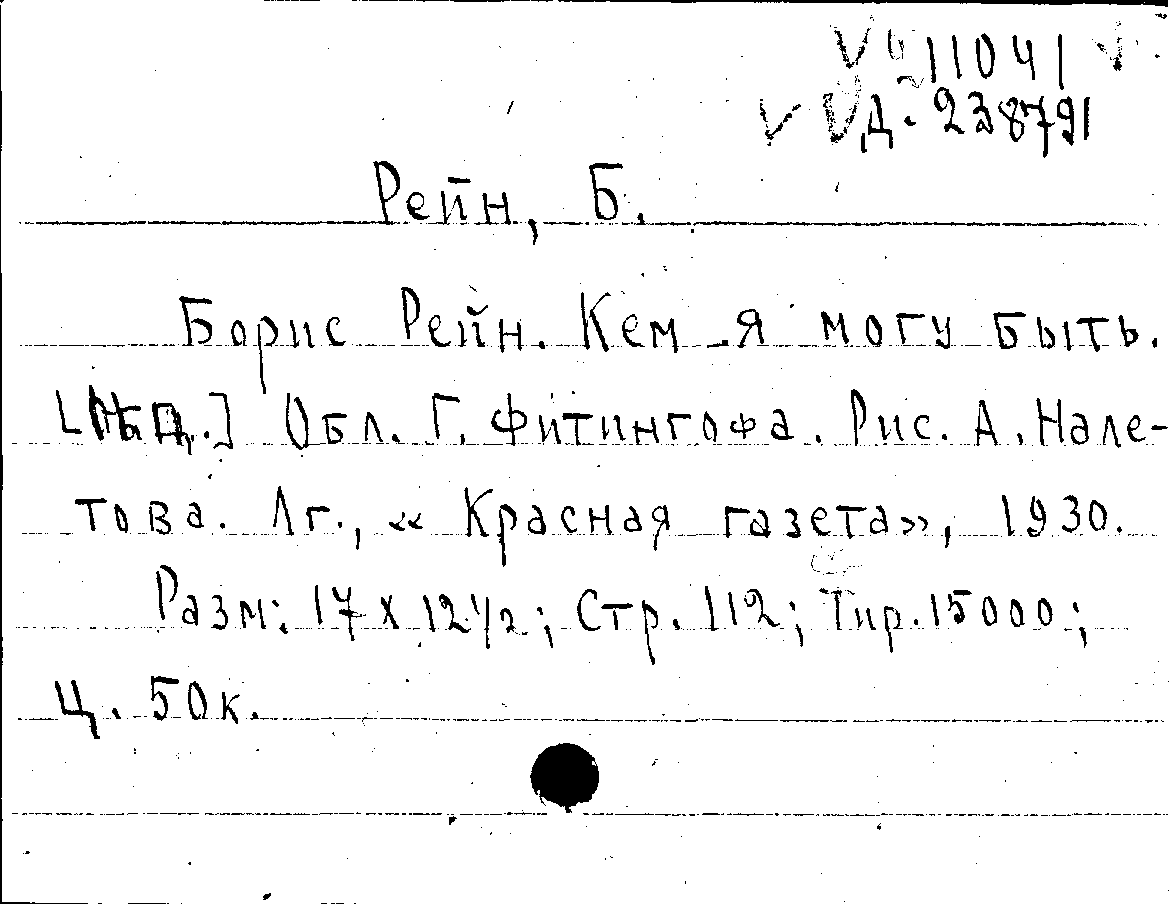 11041
Д. 238791
Рейн, Б.
Борис Рейн. Кем я могу быть.
Обл. Г. Фитингофа. Рис. А. Нале-
това. Лг., «Красная газета», 1930.
Разм: 17 х 12 1/2; Стр. 112; Тир. 15000;
Ц. 50к.